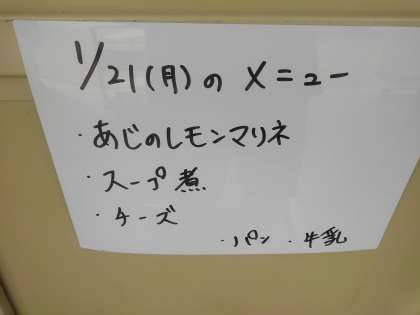 1/21(月)のメニュー
・あじのレモンマリネ
・スープ煮
・チーズ
・パン ・牛乳